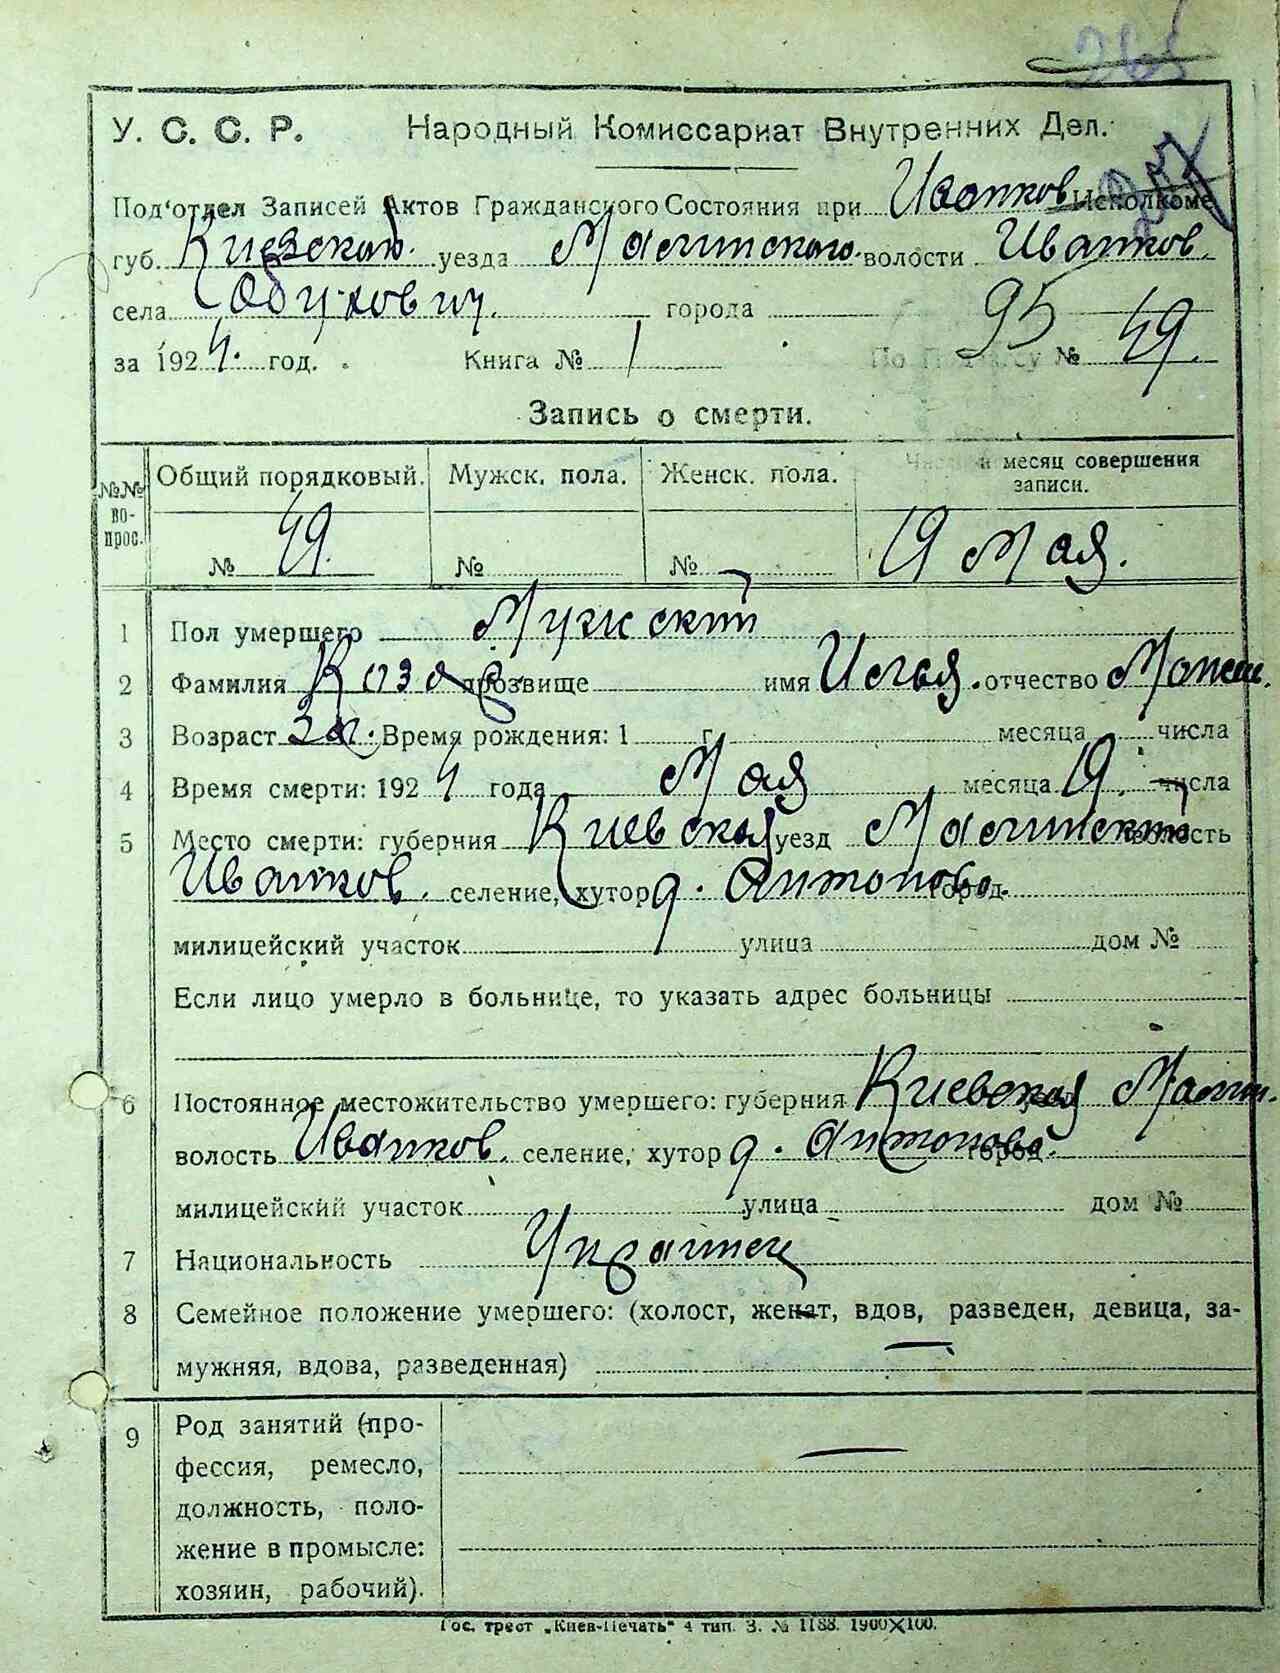 У. С. С. Р. Народный Комиссариат Внутренних Дел.
Под'отдел Записей Актов Гражданского Состояния при Иванков Исполкоме
губ. Киевской уезда волости Иванков.
села Обуховичи. города 95
за 1924. год. Книга № 1 № 49.
Запись о смерти.
№№ во-прос. Общий порядковый. Мужск. пола. Женск. пола. Число и месяц совершения записи.
№ 49. № № 19 Мая.
1 Пол умершего Мужский
2 Фамилия прозвище имя Илья. отчество
3 Возраст Время рождения: 1 г. месяца числа
4 Время смерти: 1924 года Мая месяца 19. числа
5 Место смерти: губерния Киевская уезд волость
Иванков. селение, хутор д. Антонов город
милицейский участок улица дом №
Если лицо умерло в больнице, то указать адрес больницы
6 Постоянное местожительство умершего: губерния Киевская
волость Иванков. селение, хутор д. город
милицейский участок улица дом №
7 Национальность Украинец
8 Семейное положение умершего: (холост, женат, вдов, разведен, девица, за-
мужняя, вдова, разведенная)
9 Род занятий (про-
фессия, ремесло,
должность, поло-
жение в промысле:
хозяин, рабочий).
Гос. трест „Киев-Печать“ 4 тип. З. № 1188. 1900×100.